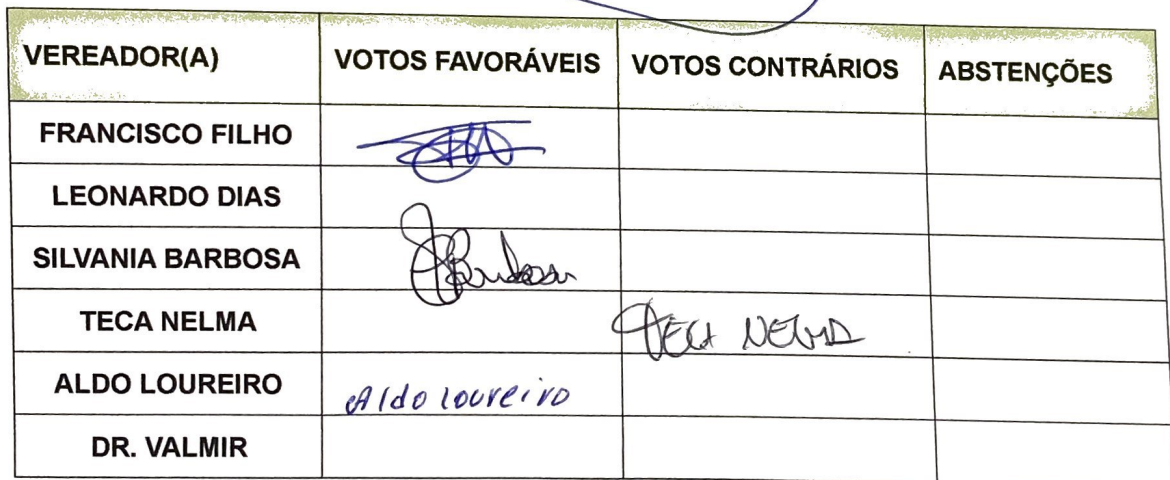 VEREADOR(A) VOTOS FAVORÁVEIS VOTOS CONTRÁRIOS ABSTENÇÕES
FRANCISCO FILHO
LEONARDO DIAS
SILVANIA BARBOSA
TECA NELMA TECA NELMA
ALDO LOUREIRO Aldo loureiro
DR. VALMIR